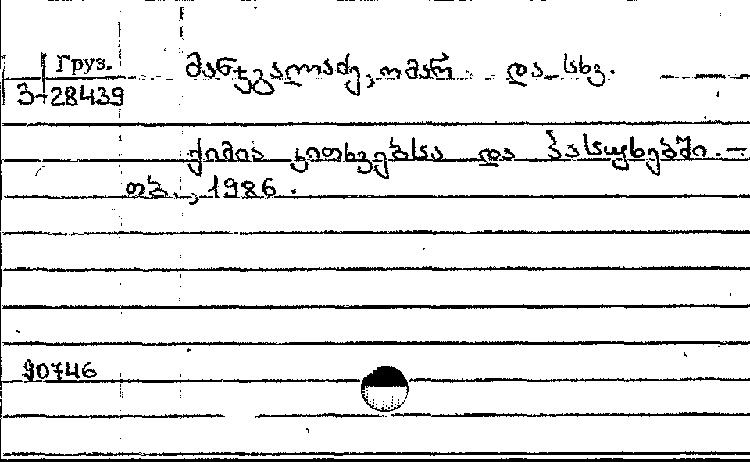 Груз.
3-28439
მანჯგალაძე, ომარ და სხვ.
ქიმია კითხვებსა და პასუხებში. —
თბ., 1986.
90746